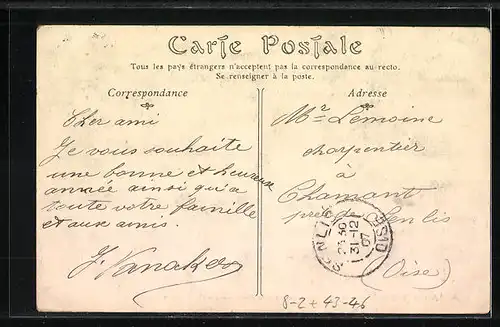 Carte Postale
Tous les pays étrangers n'acceptent pas la correspondance au recto.
Se renseigner à la poste.
Correspondance
Adresse
Cher ami
Je vous souhaite
une bonne et heureuse
année ainsi qu'a
toute votre famille
et aux amis.
J. Vanaker
Mr Lemoine
charpentier
à
Chamant
près de Senlis
(Oise)
SENLIS
OISE
23 30
31-12
07
8-2+43-46